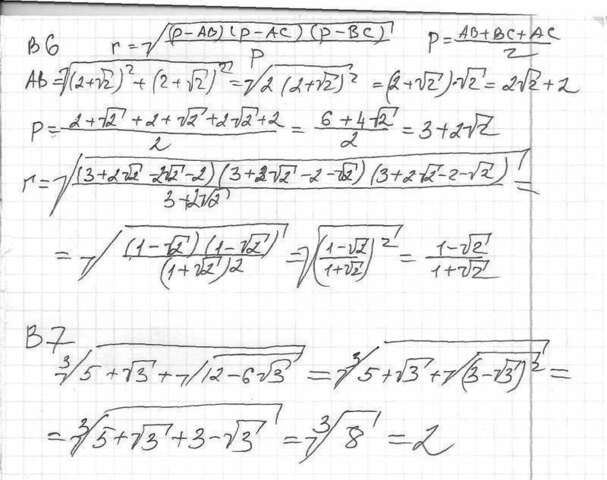 B6 r = √((p-AB)(p-AC)(p-BC)/p) p = (AB+BC+AC)/2
AB = √((2+√2)²+(2+√2)²) = √(2(2+√2)²) = (2+√2)·√2 = 2√2+2
p = (2+√2+2+√2+2√2+2)/2 = (6+4√2)/2 = 3+2√2
r = √((3+2√2-2√2-2)(3+2√2-2-√2)(3+2√2-2-√2)/(3+2√2)) =
= √((1-√2)(1-√2)/(1+√2)2) = √(((1-√2)/(1+√2))²) = (1-√2)/(1+√2)
B7
∛(5+√3+√(12-6√3)) = ∛(5+√3+√((3-√3)²)) =
= ∛(5+√3+3-√3) = ∛8 = 2